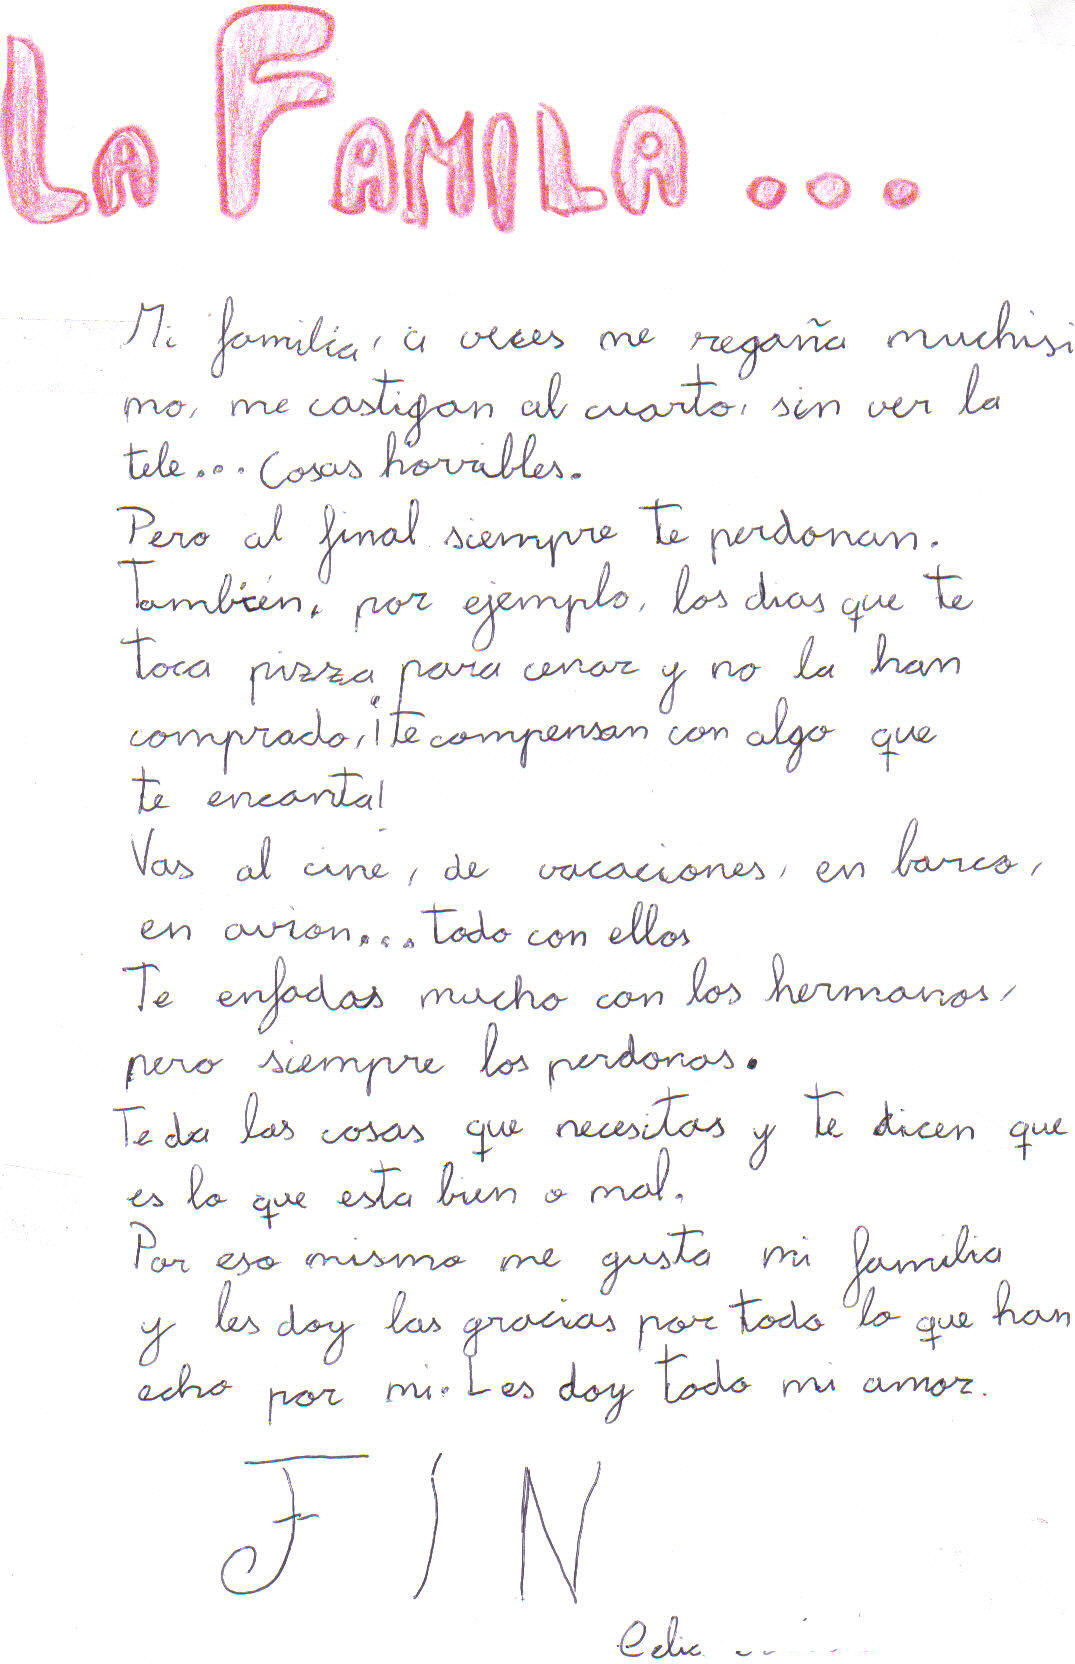 LA FAMILA...
Mi familia, a veces me regaña muchisi
mo, me castigan al cuarto, sin ver la
tele... Cosas horribles.
Pero al final siempre te perdonan.
También, por ejemplo, los dias que te
toca pizza para cenar y no la han
comprado, ¡te compensan con algo que
te encanta!
Vas al cine, de vacaciones, en barco,
en avion... todo con ellos
Te enfadas mucho con los hermanos,
pero siempre los perdonas.
Te da las cosas que necesitas y te dicen que
es lo que esta bien o mal.
Por eso mismo me gusta mi familia
y les doy las gracias por todo lo que han
echo por mi. Les doy todo mi amor.
FIN